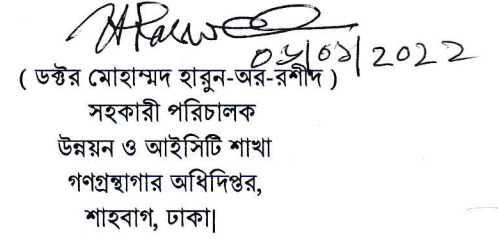 ০৬/০১/2022
( ডক্টর মোহাম্মদ হারুন-অর-রশীদ )
সহকারী পরিচালক
উন্নয়ন ও আইসিটি শাখা
গণগ্রন্থাগার অধিদপ্তর,
শাহবাগ, ঢাকা|